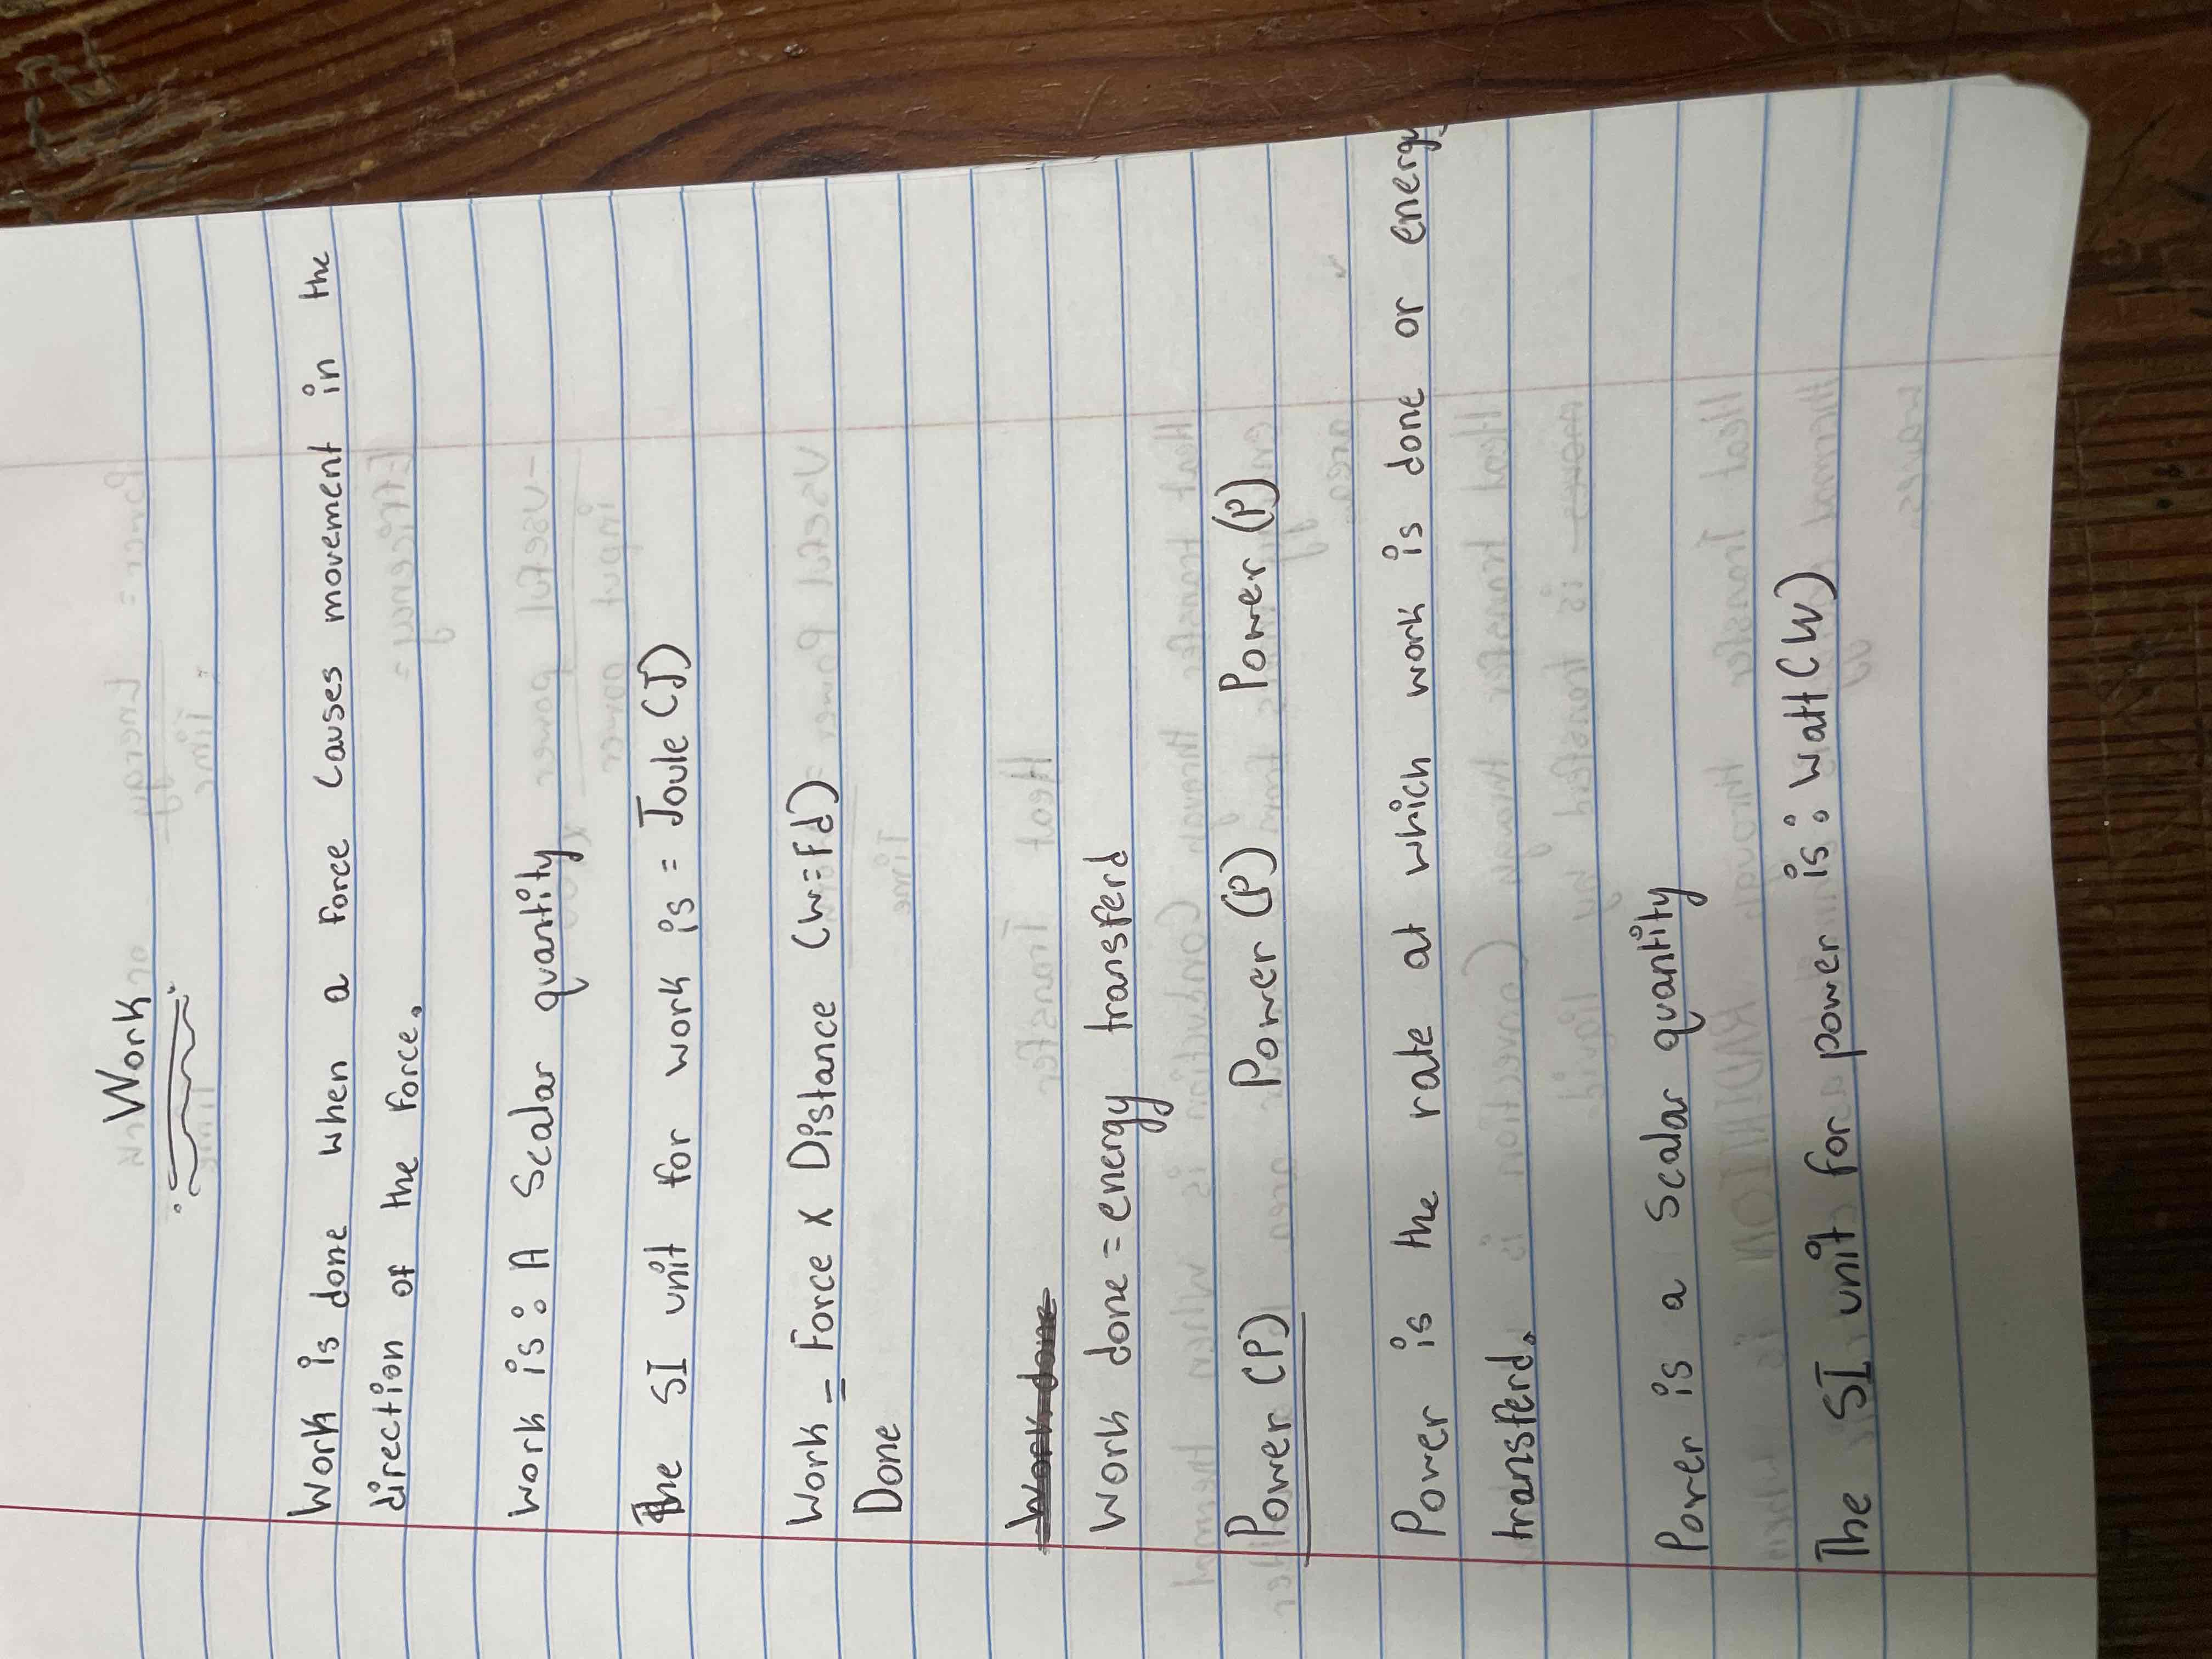 Work
Work is done when a force causes movement in the
direction of the force.
Work is: A Scalar quantity
The SI unit for work is = Joule (J)
Work = Force x Distance (W=Fd)
Done
Work done
Work done = energy transferd
Power (P) Power (P) Power (P)
Power is the rate at which work is done or energy
transferd.
Power is a Scalar quantity
The SI unit for power is: Watt (W)